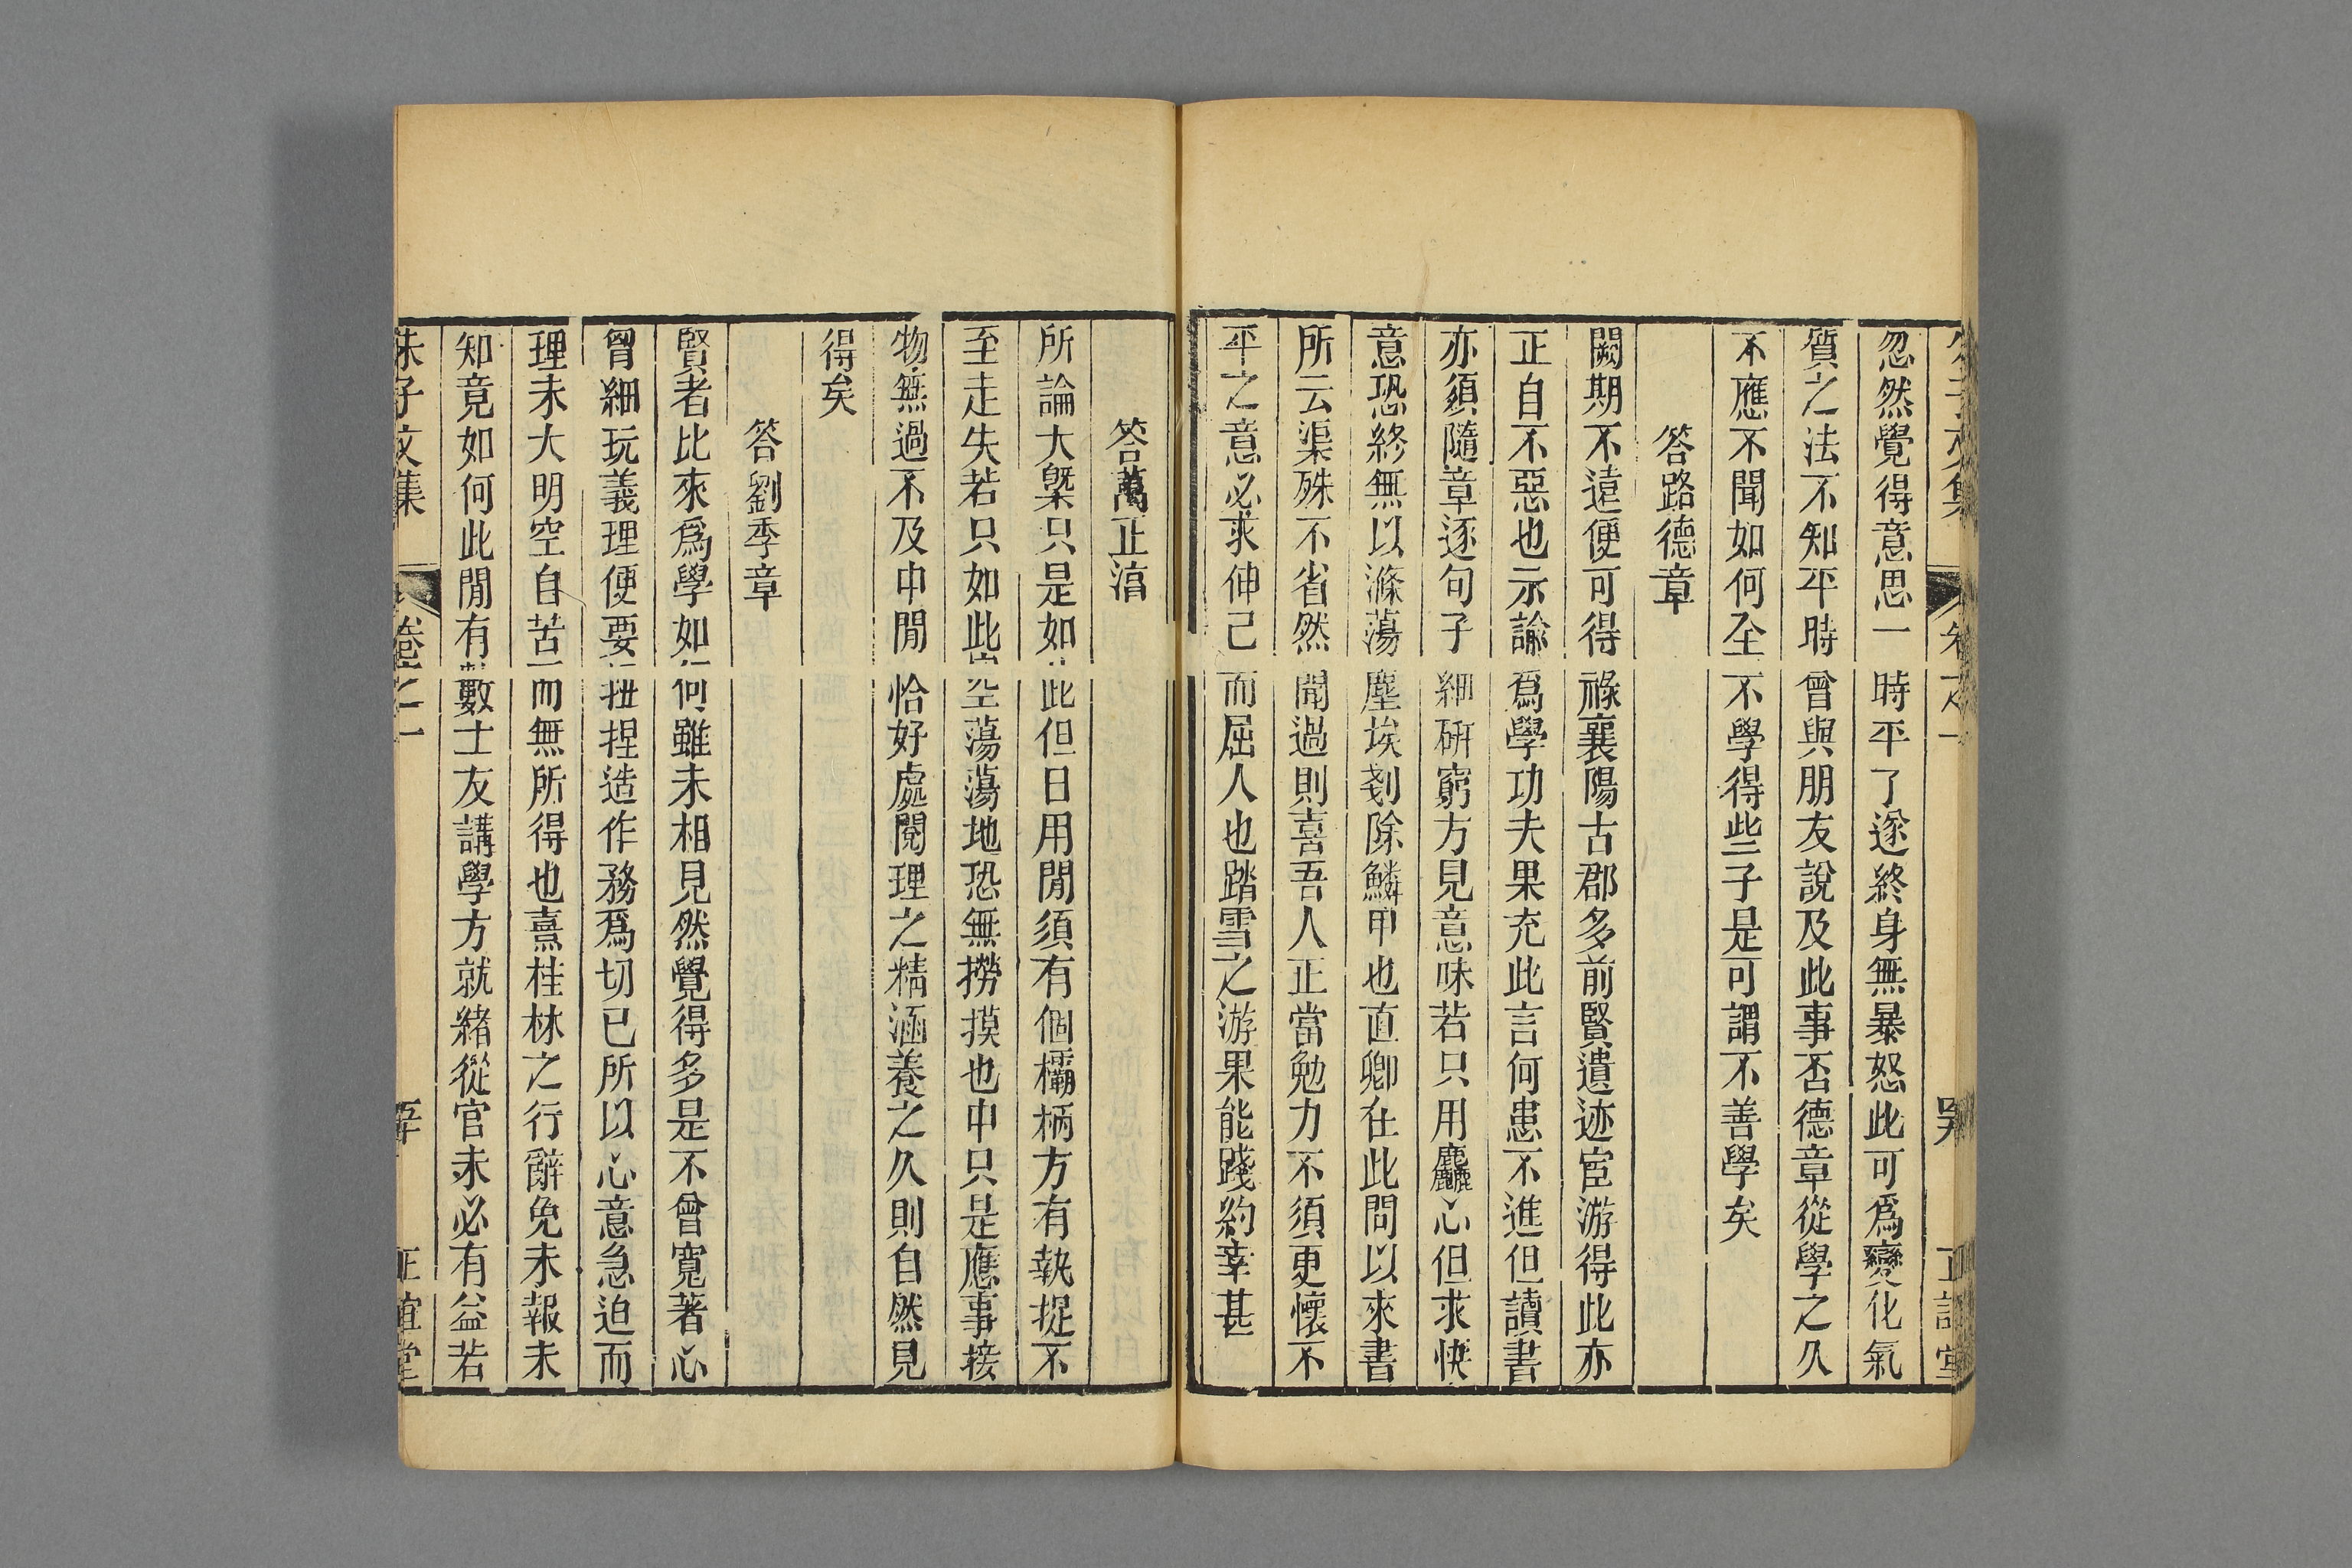 忽然覺得意思一時平了遂終身無暴怒此可爲變化氣
質之法不知平時曾與朋友說及此事否德章從學之久
不應不聞如何全不學得些子是可謂不善學矣
答路德章
闕期不遠便可得祿襄陽古郡多前賢遺迹宦游得此亦
正自不惡也示諭爲學功夫果充此言何患不進但讀書
亦須隨章逐句子細硏窮方見意味若只用麤心但求快
意恐終無以滌蕩塵埃剗除鱗甲也直卿在此問以來書
所云渠殊不省然聞過則喜吾人正當勉力不須更懷不
平之意必求伸己而屈人也踏雪之游果能踐約幸甚
答萬正淳
所論大槩只是如此但日用閒須有個欛柄方有執捉不
至走失若只如此空蕩蕩地恐無撈摸也中只是應事接
物無過不及中閒恰好處閱理之精涵養之久則自然見
得矣
答劉季章
賢者比來爲學如何雖未相見然覺得多是不曾寬著心
曾細玩義理便要扭捏造作務爲切已所以心意急迫而
理未大明空自苦而無所得也熹桂林之行辭免未報未
知竟如何此閒有數士友講學方就緒從官未必有益若
朱子文集
卷之一
五十
正誼堂